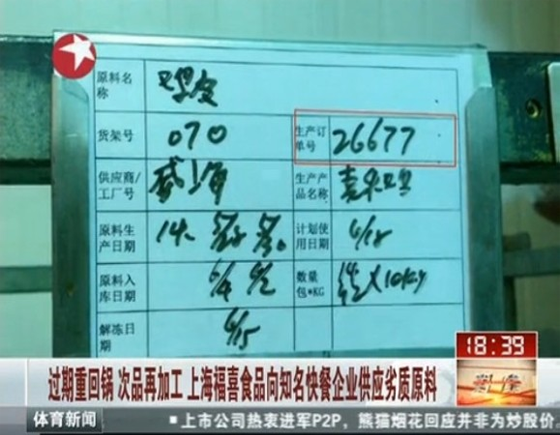 原料名称 鸡皮
货架号 070 生产订单号 26677
供应商/工厂号 威海 生产产品名称
原料生产日期 14. 计划使用日期 6/18
原料入库日期 数量 包*KG X10Kg
解冻日期 6/15
18:39
过期重回锅 次品再加工 上海福喜食品向知名快餐企业供应劣质原料
体育新闻 上市公司热衷进军P2P，熊猫烟花回应并非为炒股价